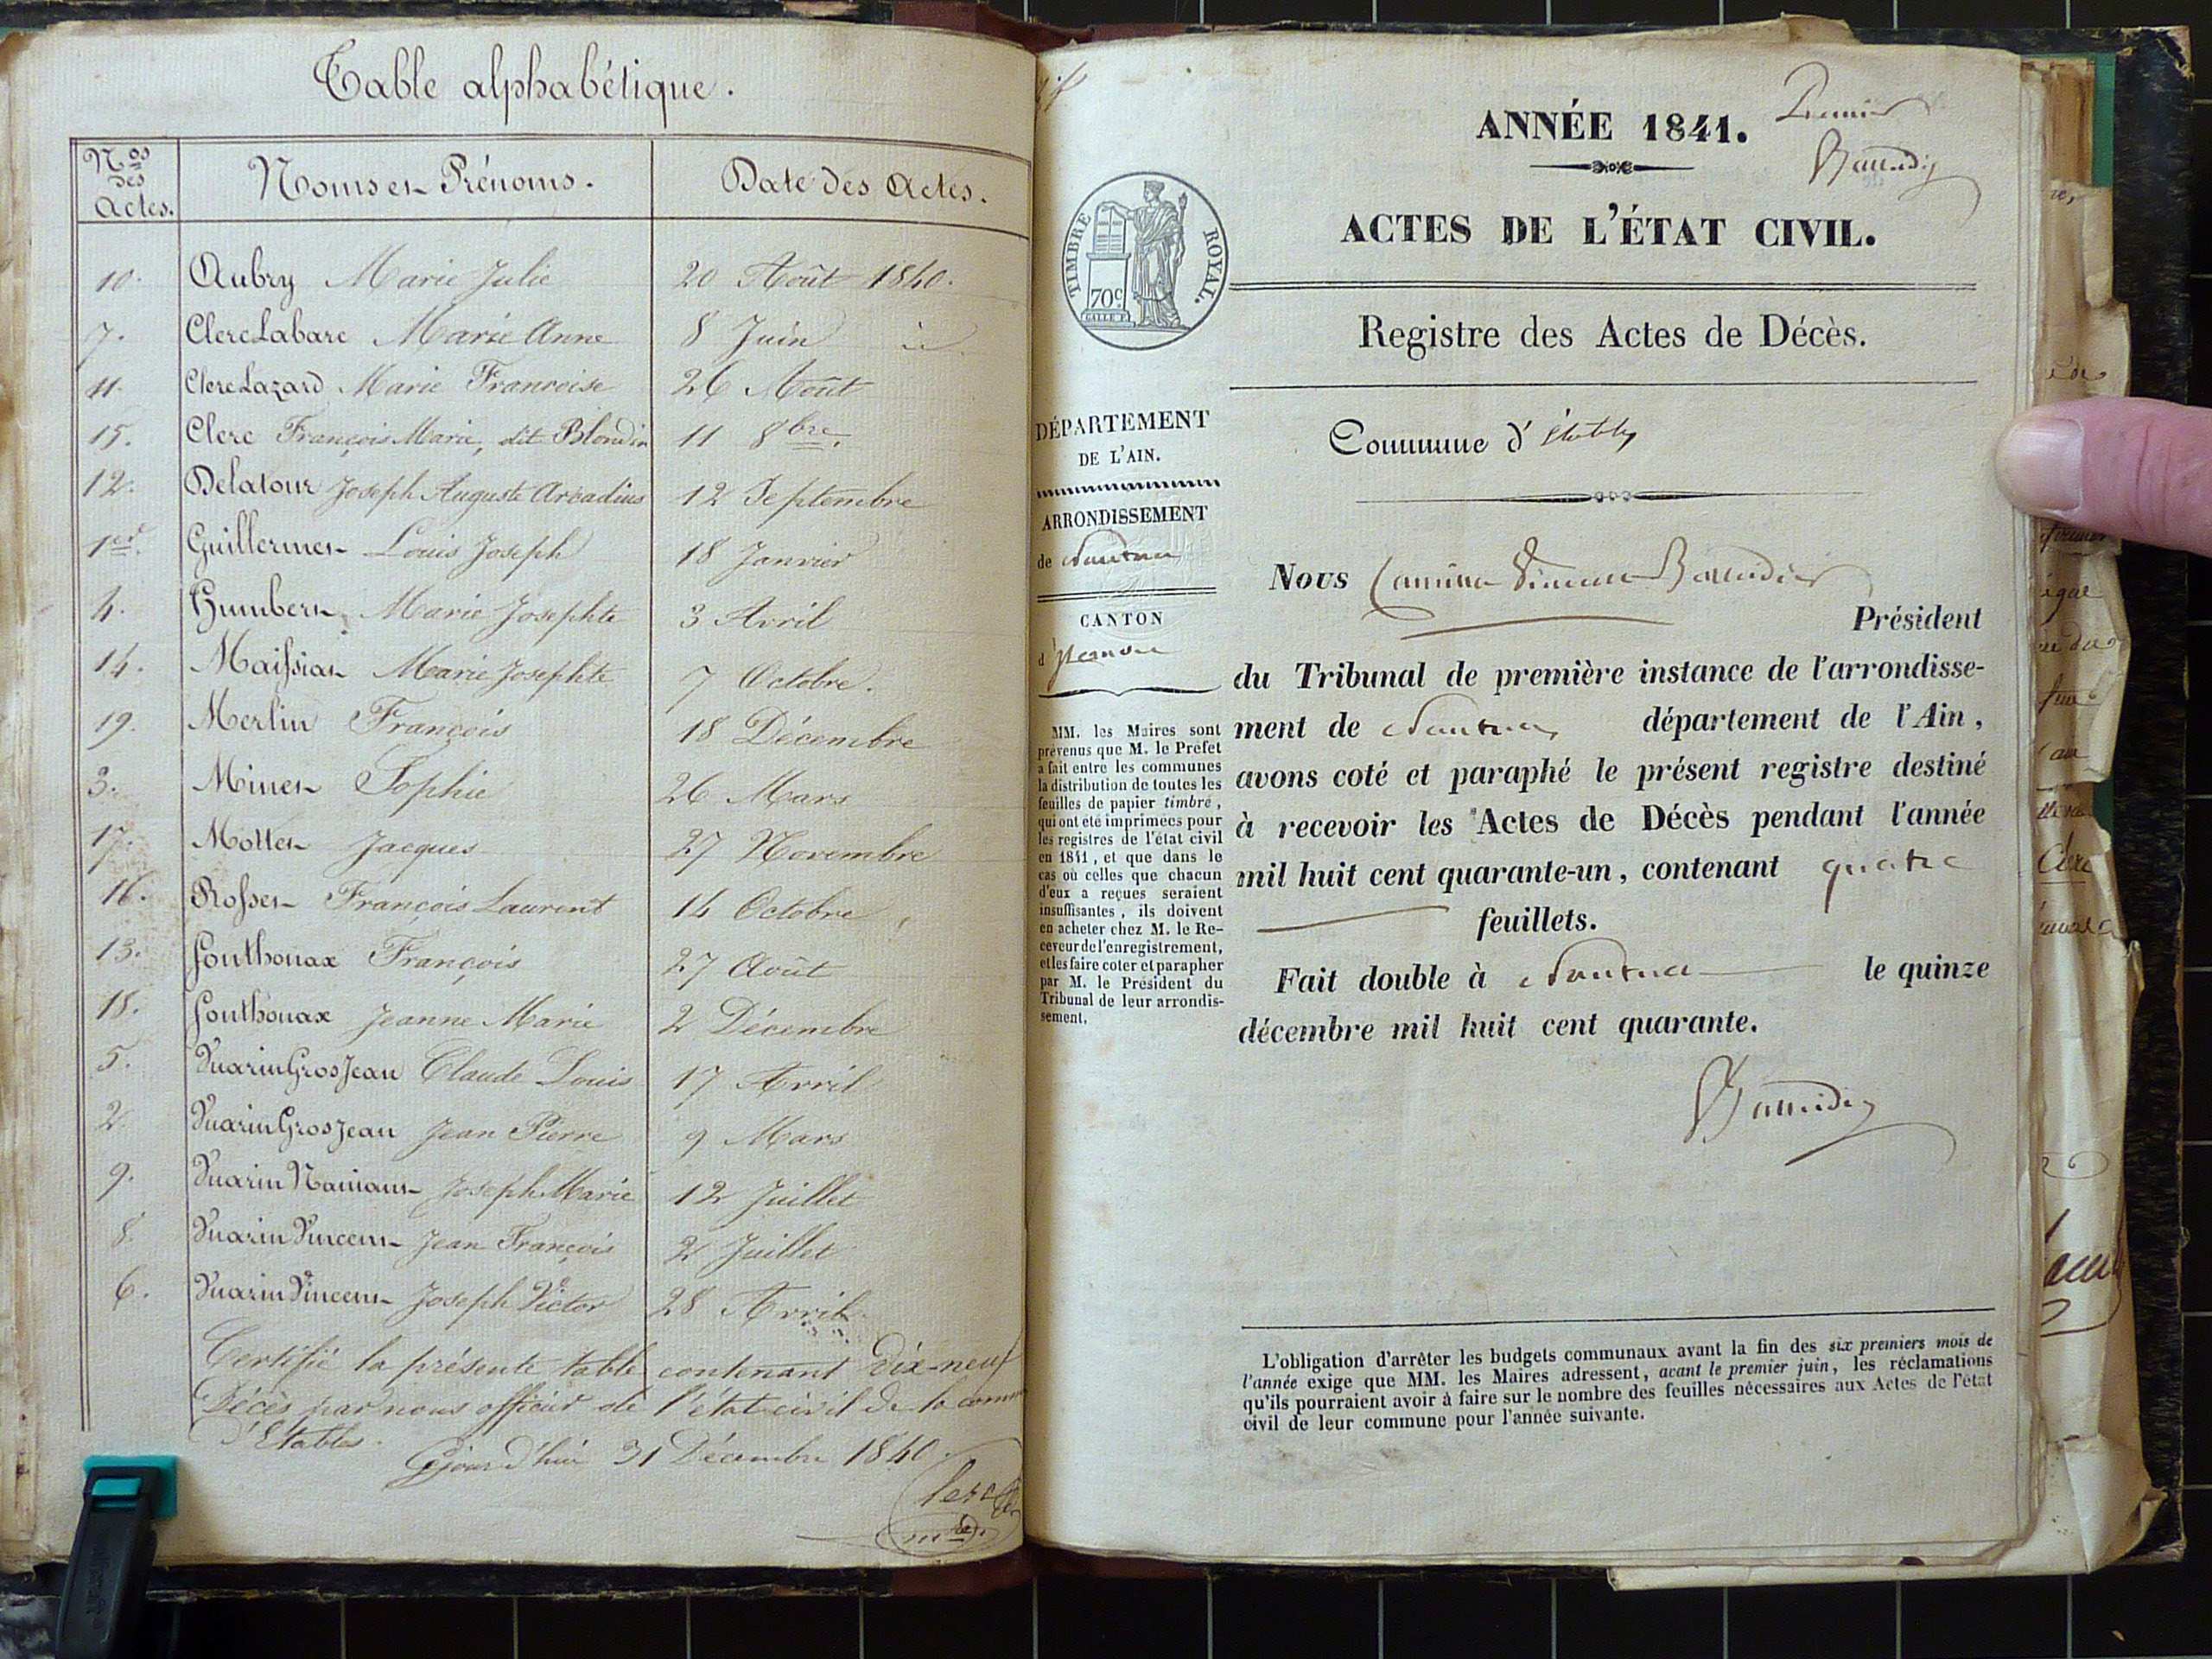 Table alphabétique.
Nos des Actes. Noms et Prénoms. Date des Actes.
10. Aubry Marie Julie 20 Août 1840.
7. Clerc Labare Marie Anne 8 Juin id
11. Clerc Lazard Marie Francoise 26 Août
15. Clerc François Marie, dit Blondin 11 8bre.
12. Delatour Joseph Auguste Arcadius 12 Septembre
1er. Guillermet Louis Joseph 18 Janvier
4. Humbert Marie Josephte 3 Avril
14. Maissiat Marie Josephte 7 Octobre.
19. Merlin François 18 Décembre
3. Minet Sophie 26 Mars
17. Mottet Jacques 27 Novembre
16. Rosset François Laurent 14 Octobre
13. Sonthonax François 27 Août
18. Sonthonax Jeanne Marie 2 Décembre
5. Vuarin Gros Jean Claude Louis 17 Avril
2. Vuarin Gros Jean Jean Pierre 9 Mars
9. Vuarin Joseph Marie 12 Juillet
8. Vuarin Vincent Jean François 2 Juillet
6. Vuarin Vincent Joseph Victor 28 Avril
Certifié la présente table contenant dix-neuf
Décès par nous officier de l'état civil de la comm
d'Etables.
Cejourd'hui 31 Décembre 1840.
Clerc
Premier
ANNÉE 1841.
Baundier
ACTES DE L'ÉTAT CIVIL.
TIMBRE ROYAL.
70c
Registre des Actes de Décès.
DÉPARTEMENT
DE L'AIN.
ARRONDISSEMENT
de Nantua
CANTON
d'Izernore
MM. les Maires sont
prévenus que M. le Préfet
a fait entre les communes
la distribution de toutes les
feuilles de papier timbré,
qui ont été imprimées pour
les registres de l'état civil
en 1841, et que dans le
cas où celles que chacun
d'eux a reçues seraient
insuffisantes, ils doivent
en acheter chez M. le Re-
ceveur de l'enregistrement,
et les faire coter et parapher
par M. le Président du
Tribunal de leur arrondis-
sement.
Commune d'Etables
Nous
Président
du Tribunal de première instance de l'arrondisse-
ment de Nantua, département de l'Ain,
avons coté et paraphé le présent registre destiné
à recevoir les Actes de Décès pendant l'année
mil huit cent quarante-un, contenant quatre
feuillets.
Fait double à Nantua le quinze
décembre mil huit cent quarante.
L'obligation d'arrêter les budgets communaux avant la fin des six premiers mois de
l'année exige que MM. les Maires adressent, avant le premier juin, les réclamations
qu'ils pourraient avoir à faire sur le nombre des feuilles nécessaires aux Actes de l'état
civil de leur commune pour l'année suivante.